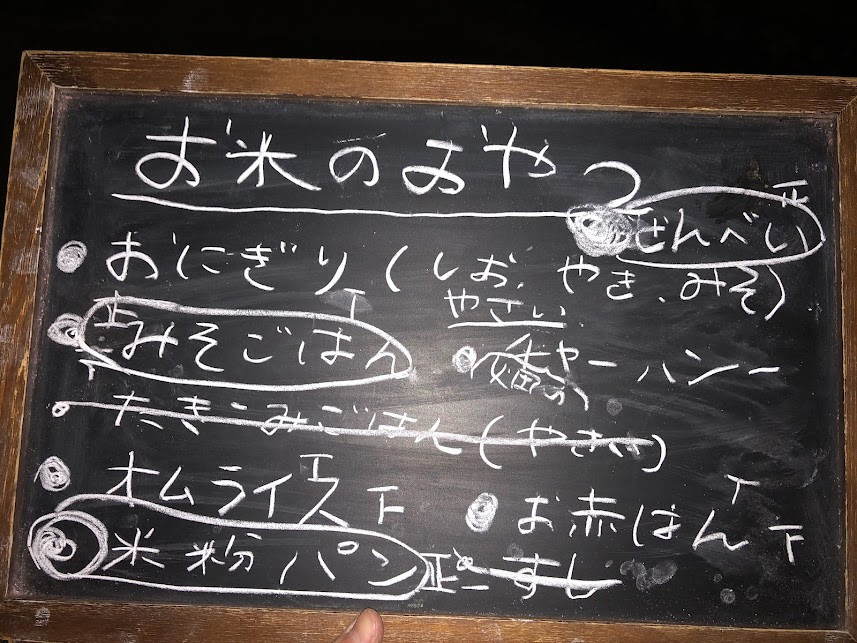 お米のおやつ
せんべい 正
おにぎり(しお、やき、みそ)
みそごはん 正
やさい
チャーハン
たきこみごはん(やさい)
オムライス 下
お赤はん 下
米粉パン 正
すし